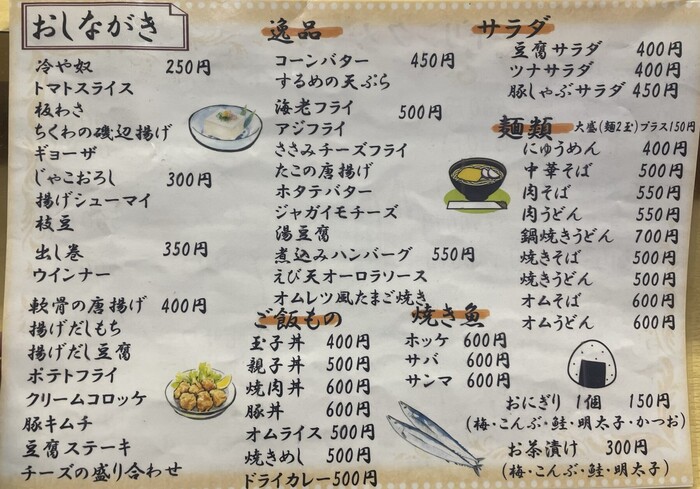 おしながき
冷や奴 250円
トマトスライス
板わさ
ちくわの磯辺揚げ
ギョーザ
じゃこおろし 300円
揚げシューマイ
枝豆
出し巻 350円
ウインナー
軟骨の唐揚げ 400円
揚げだしもち
揚げだし豆腐
ポテトフライ
クリームコロッケ
豚キムチ
豆腐ステーキ
チーズの盛り合わせ
逸品
コーンバター 450円
するめの天ぷら
海老フライ 500円
アジフライ
ささみチーズフライ
たこの唐揚げ
ホタテバター
ジャガイモチーズ
湯豆腐
煮込みハンバーグ 550円
えび天オーロラソース
オムレツ風たまご焼き
ご飯もの
玉子丼 400円
親子丼 500円
焼肉丼 600円
豚丼 600円
オムライス 500円
焼きめし 500円
ドライカレー 500円
焼き魚
ホッケ 600円
サバ 600円
サンマ 600円
サラダ
豆腐サラダ 400円
ツナサラダ 400円
豚しゃぶサラダ 450円
麺類 大盛(麺2玉)プラス150円
にゅうめん 400円
中華そば 500円
肉そば 550円
肉うどん 550円
鍋焼きうどん 700円
焼きそば 500円
焼きうどん 500円
オムそば 600円
オムうどん 600円
おにぎり 1個 150円
(梅・こんぶ・鮭・明太子・かつお)
お茶漬け 300円
(梅・こんぶ・鮭・明太子)